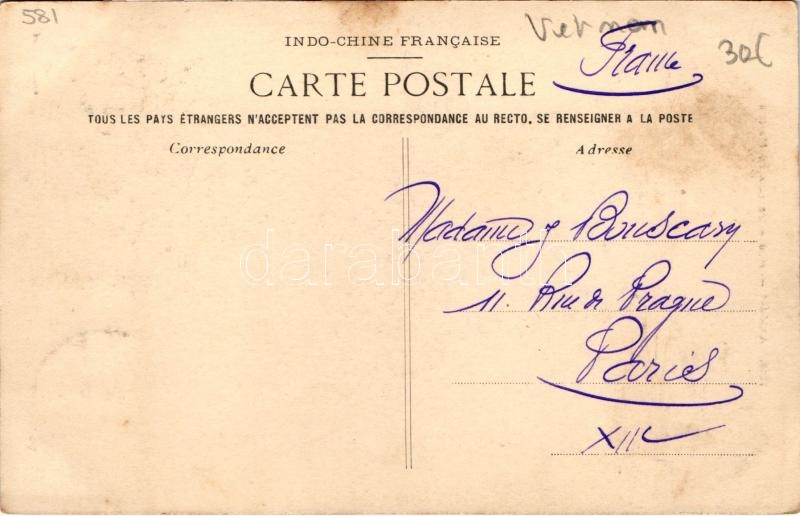 581
Viet nam
30C
INDO-CHINE FRANÇAISE
France
CARTE POSTALE
TOUS LES PAYS ÉTRANGERS N'ACCEPTENT PAS LA CORRESPONDANCE AU RECTO. SE RENSEIGNER A LA POSTE
Correspondance
Adresse
Madame J Bouscary
darabanth
11. Rue de Prague
Paris
XIIe